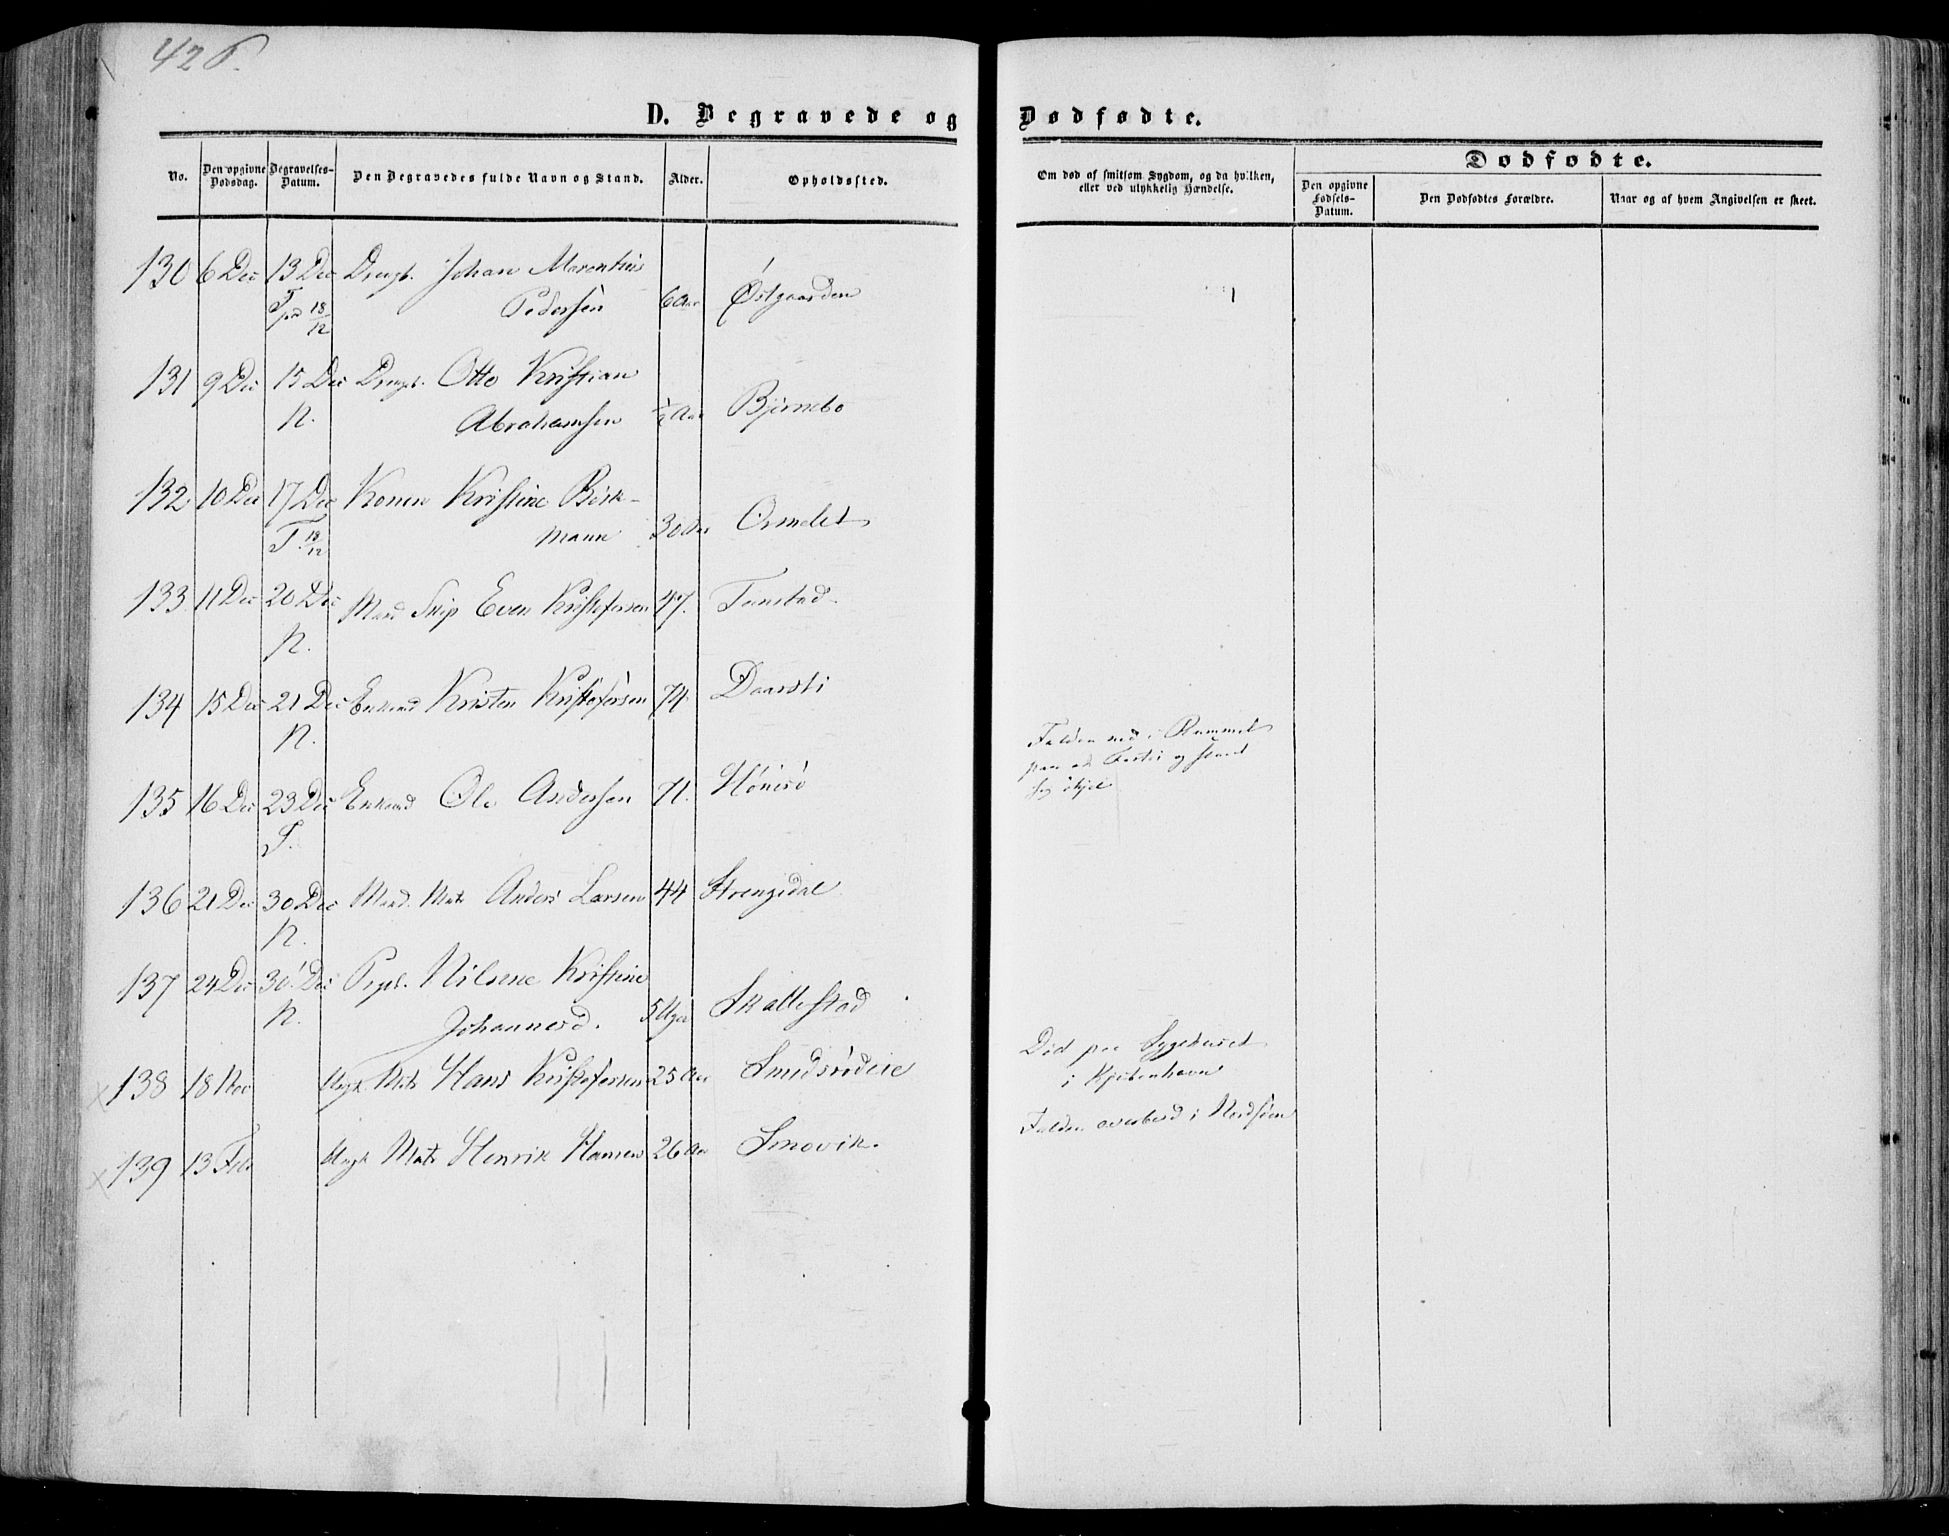 426.
D. Begravede og Dødfødte.
No.
Den opgivne Dødsdag.
Begravelses-Datum.
Den Begravedes fulde Navn og Stand.
Alder.
Opholdssted.
Om død af smitsom Sygdom, og da hvilken, eller ved ulykkelig Hændelse.
Dødfødte.
Den opgivne Fødsels-Datum.
Den Dødfødtes Forældre.
Naar og af hvem Angivelsen er skeet.
130 6 Dec 13 Dec Drengb. Johan Marenthius
T. paa 18/12 Pedersen 6 Aar Østgaarden
131 9 Dec 15 Dec Drengb. Otto Kristian
N. Abrahamsen ½ Aar Bjørnebo
132 10 Dec 17 Dec Konen Kristine Børk-
T. 18/12 mann 30 Aar Ormelet
133 11 Dec 20 Dec Mand Skip Even Kristofersen 47. Tunstad.
N.
134 15 Dec 21 Dec Enkemd Kristen Kristofersen 74. Daarsti
N.
135 16 Dec 23 Dec Enkemd Ole Andersen 71. Hønsø
T.
Falden ned i Rummet
paa et og slaaet
sig ihjel
136 21 Dec 30 Dec Mand. Mats Anders Larsen 44 Strengsdal
N.
137 24 Dec 30 Dec Pigeb. Nilsene Kristine
N. Johannesd. 5 Uger Skallestad
138 18 Nov Ungk Mats Hans Kristofersen 25 Aar Smidsrødeie
Død paa Sygehuset
i Kjøbenhavn
139 13 Feb Ungk Mats Henrik Hansen 26 Aar Smovik.
Falden overbord i Nordsøen